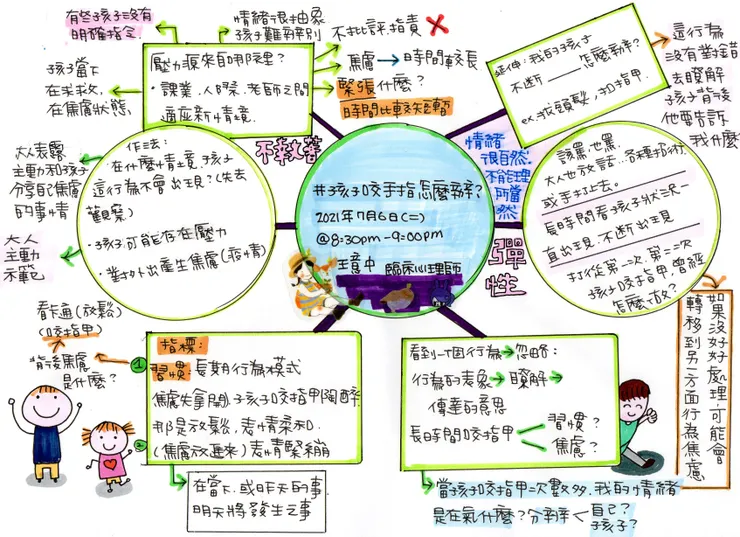 #孩子咬手指怎麼辦?
2021年7月6日(二)
@8:30pm-9:00pm
王意中 臨床心理師
有些孩子沒有
明確指令
情緒很抽象
孩子難辨別
不批評.指責
焦慮→時間較長
緊張什麼?
時間比較短暫
壓力源來自哪裡?
·課業.人際.老師之間
適應新情境.
孩子當下
在求救,
在焦慮狀態.
大人表露
主動和孩子
分享自己焦慮
的事情
大人
主動
示範
作法:
·在什麼情境,孩子
這行為不會出現?(先去
觀察)
·孩子可能存在壓力
·對外出產生焦慮(疫情)
不執著
延伸:我的孩子
不斷___怎麼辦?
ex:拔頭髮,扣指甲.
這行為
沒有對錯
去瞭解
孩子背後
他要告訴
我什麼
情緒
很自然.
不能理
所當
然
該罵也罵.
大人也放話...各種招術.
或手打上去。
長時間看孩子狀況一
直出現.不斷出現
打從第一次.第二次
孩子咬指甲.曾經
怎麼做?
彈性
如果沒好好處理.可能會
轉移到另一方面行為焦慮
看卡通(放鬆)
(咬指甲)
背後焦慮
是什麼?
指標:
1 習慣:長期行為模式
焦慮先拿開,孩子咬指甲陶醉
那是放鬆,表情柔和.
2 (焦慮放進來)表情緊繃
在當下.或昨天的事.
明天將發生之事
看到一個行為→忽略:
行為的表象→瞭解→
傳達的意思
長時間咬指甲 習慣?
焦慮?
當孩子咬指甲次數多.我的情緒
是在氣什麼?分辨 自己?
孩子?